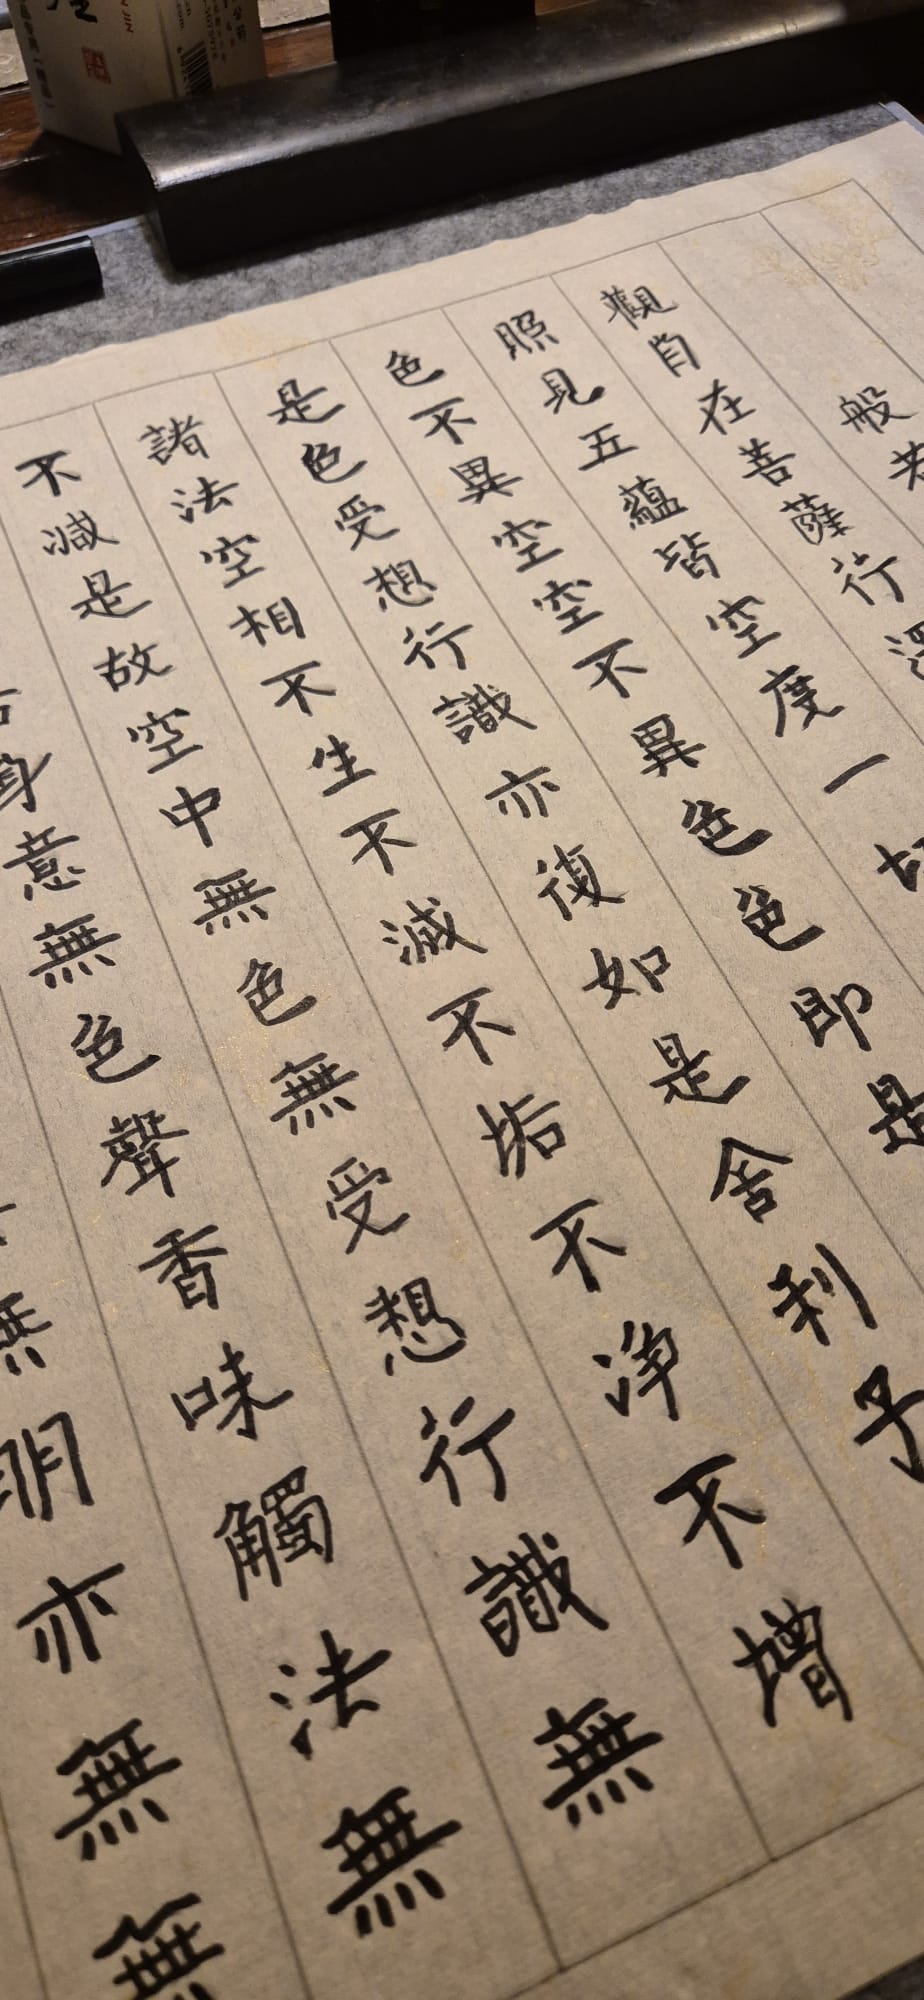 般若
觀自在菩薩行深
照見五蘊皆空度一切
色不異空空不異色色即是
是色受想行識亦復如是舍利子
諸法空相不生不滅不垢不净不增
不減是故空中無色無受想行識無
身意無色聲香味觸法無
無明亦無無